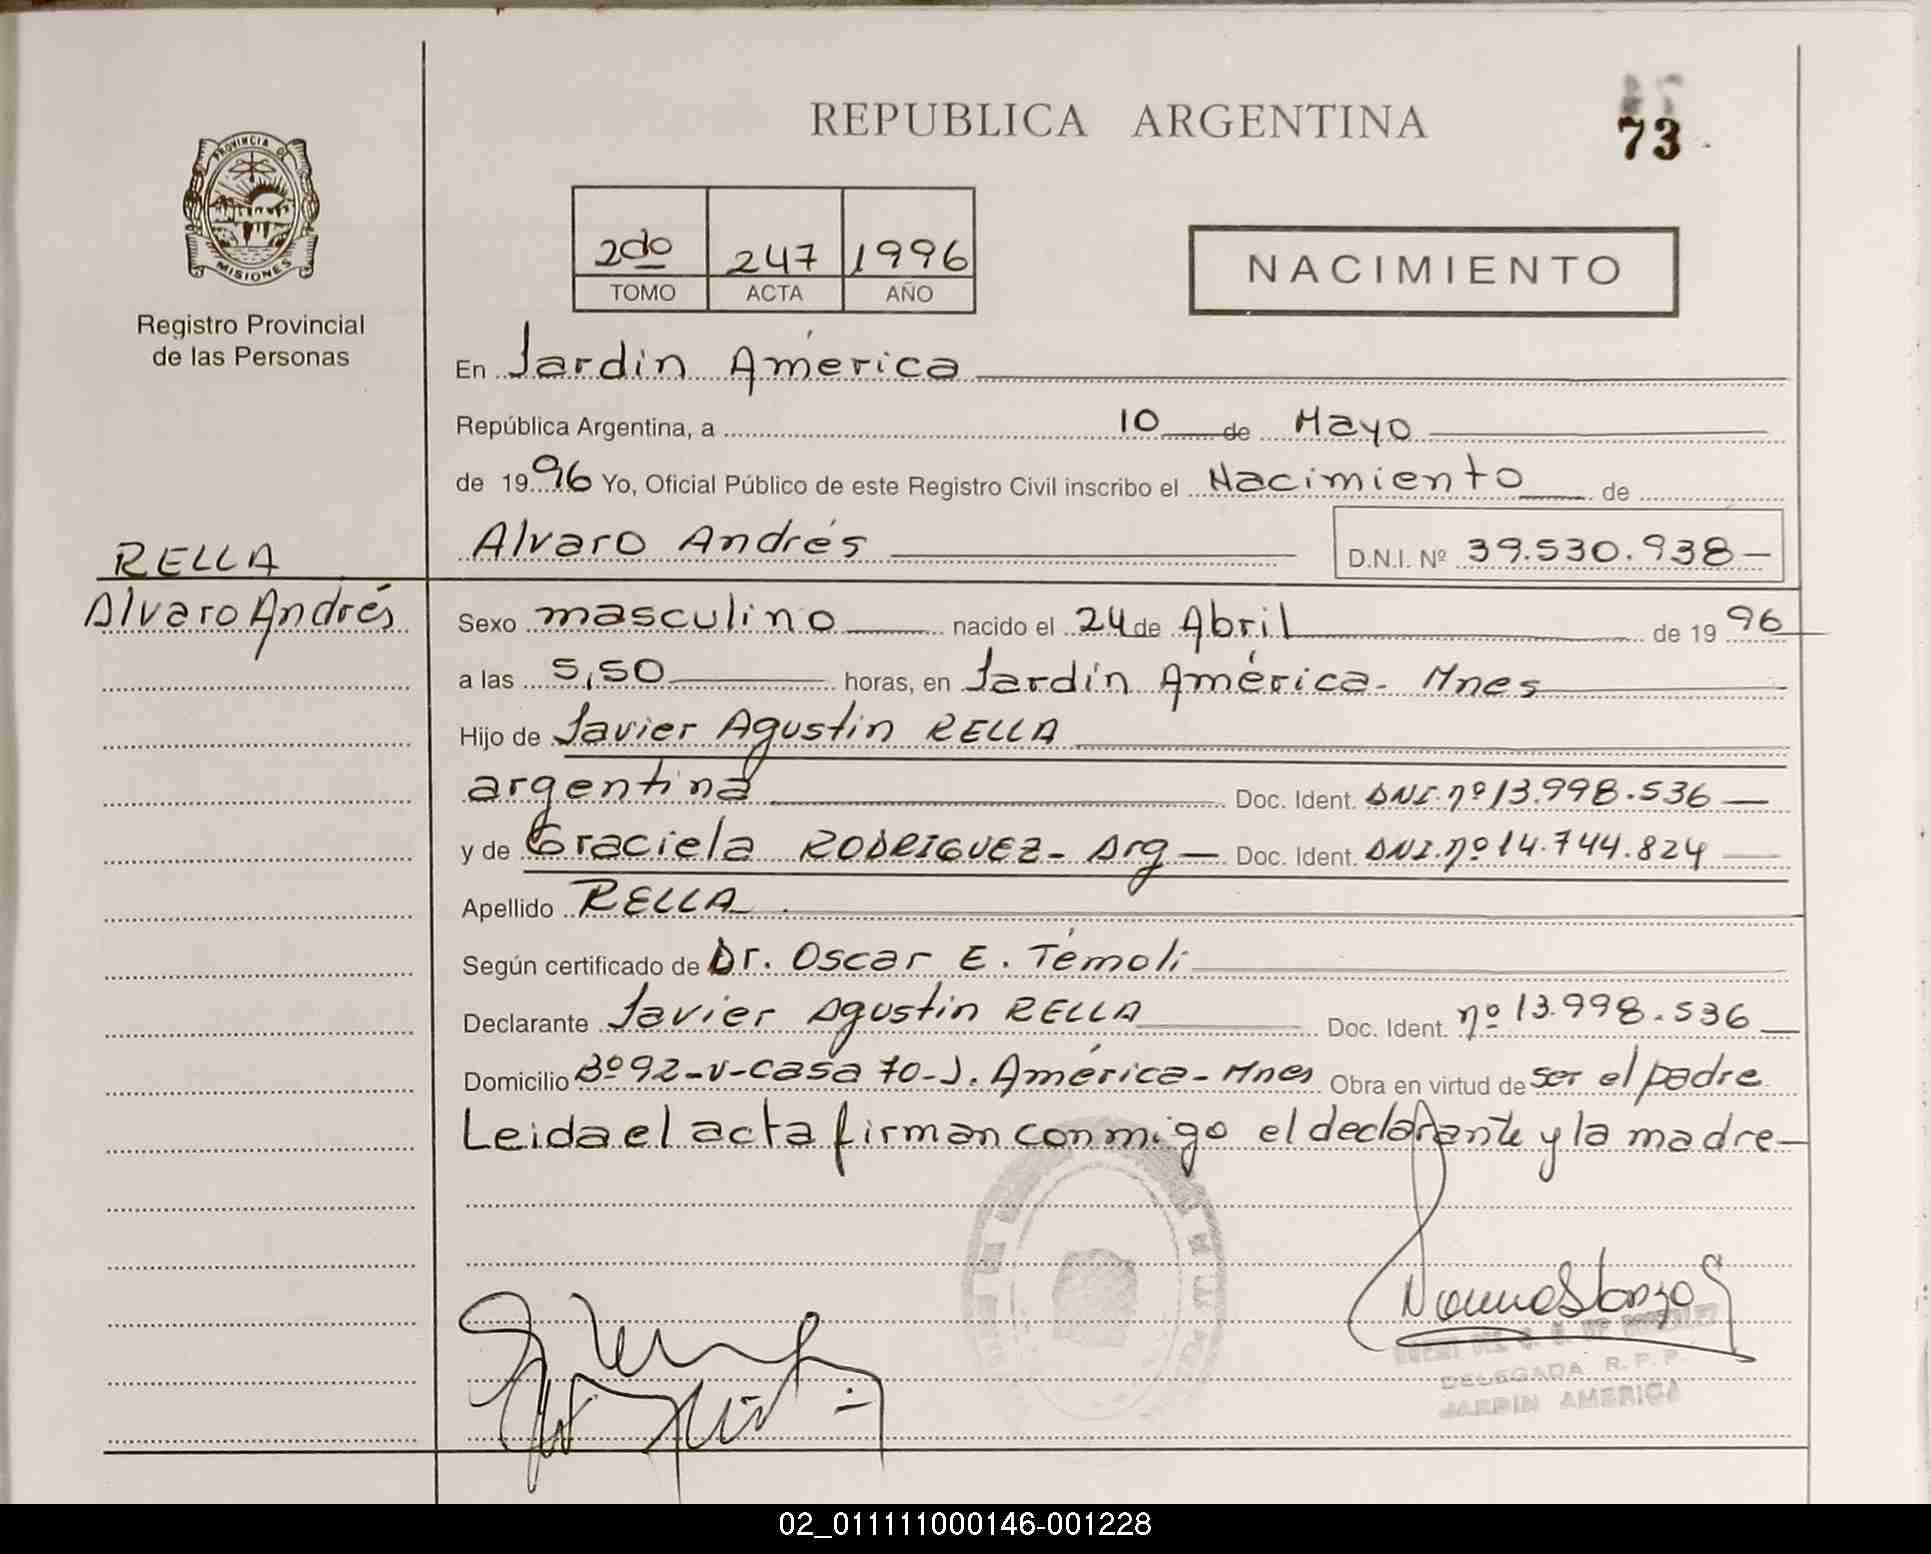 REPUBLICA ARGENTINA
73
PROVINCIA DE
MISIONES
Registro Provincial
de las Personas
2do 247 1996
TOMO ACTA AÑO
NACIMIENTO
En Jardín América
República Argentina, a 10 de Mayo
de 1996 Yo, Oficial Público de este Registro Civil inscribo el Nacimiento de
Alvaro Andrés D.N.I. Nº 39.530.938
RELLA
Alvaro Andrés
Sexo masculino nacido el 24 de Abril de 1996
a las 5,50 horas, en Jardín América - Mnes
Hijo de Javier Agustín RELLA
argentina Doc. Ident. DNI. nº 13.998.536
y de Graciela RODRIGUEZ - Arg Doc. Ident. DNI. nº 14.744.824
Apellido RELLA
Según certificado de Dr. Oscar E. Témoli
Declarante Javier Agustín RELLA Doc. Ident. nº 13.998.536
Domicilio Bº 92-V-Casa 70-J. América-Mnes Obra en virtud de ser el padre
Leida el acta firman conmigo el declarante y la madre
DELEGADA R. P. P.
JARDIN AMERICA
02_011111000146-001228